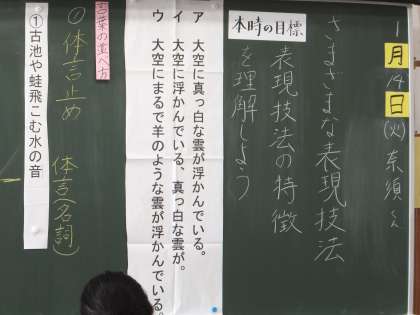 1月14日(火)奈須くん
さまざまな表現技法
本時の目標
表現技法の特徴
を理解しよう
ア 大空に真っ白な雲が浮かんでいる。
イ 大空に浮かんでいる、真っ白な雲が。
ウ 大空にまるで羊のような雲が浮かんでいる。
言葉の並べ方
体言止め
体言(名詞)
①古池や蛙飛こむ水の音